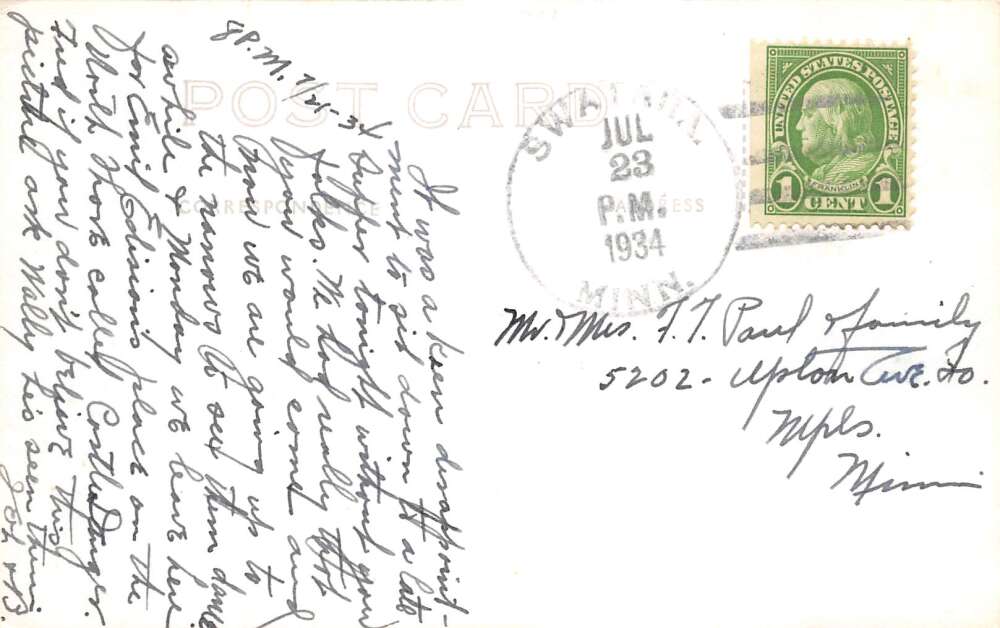 POST CARD
CORRESPONDENCE
ADDRESS
8 P.M. 7/21-34
It was a keen disappoint-
ment to sit down to a late
supper tonight without you
folks. We had really that
you would come and
now we are going up to
the narrows to see them dance
awhile & Monday we leave here
for Emil Edisons place on the
North Shore called Castle Danger.
And if you don't believe this
picture ask Wally he's seen them.
SWATARA,
JUL
23
P.M.
1934
MINN.
UNITED STATES POSTAGE
FRANKLIN
1 CENT 1
Mr. & Mrs. F. T. Paul & family
5202 - Upton Ave. So.
Mpls.
Minn